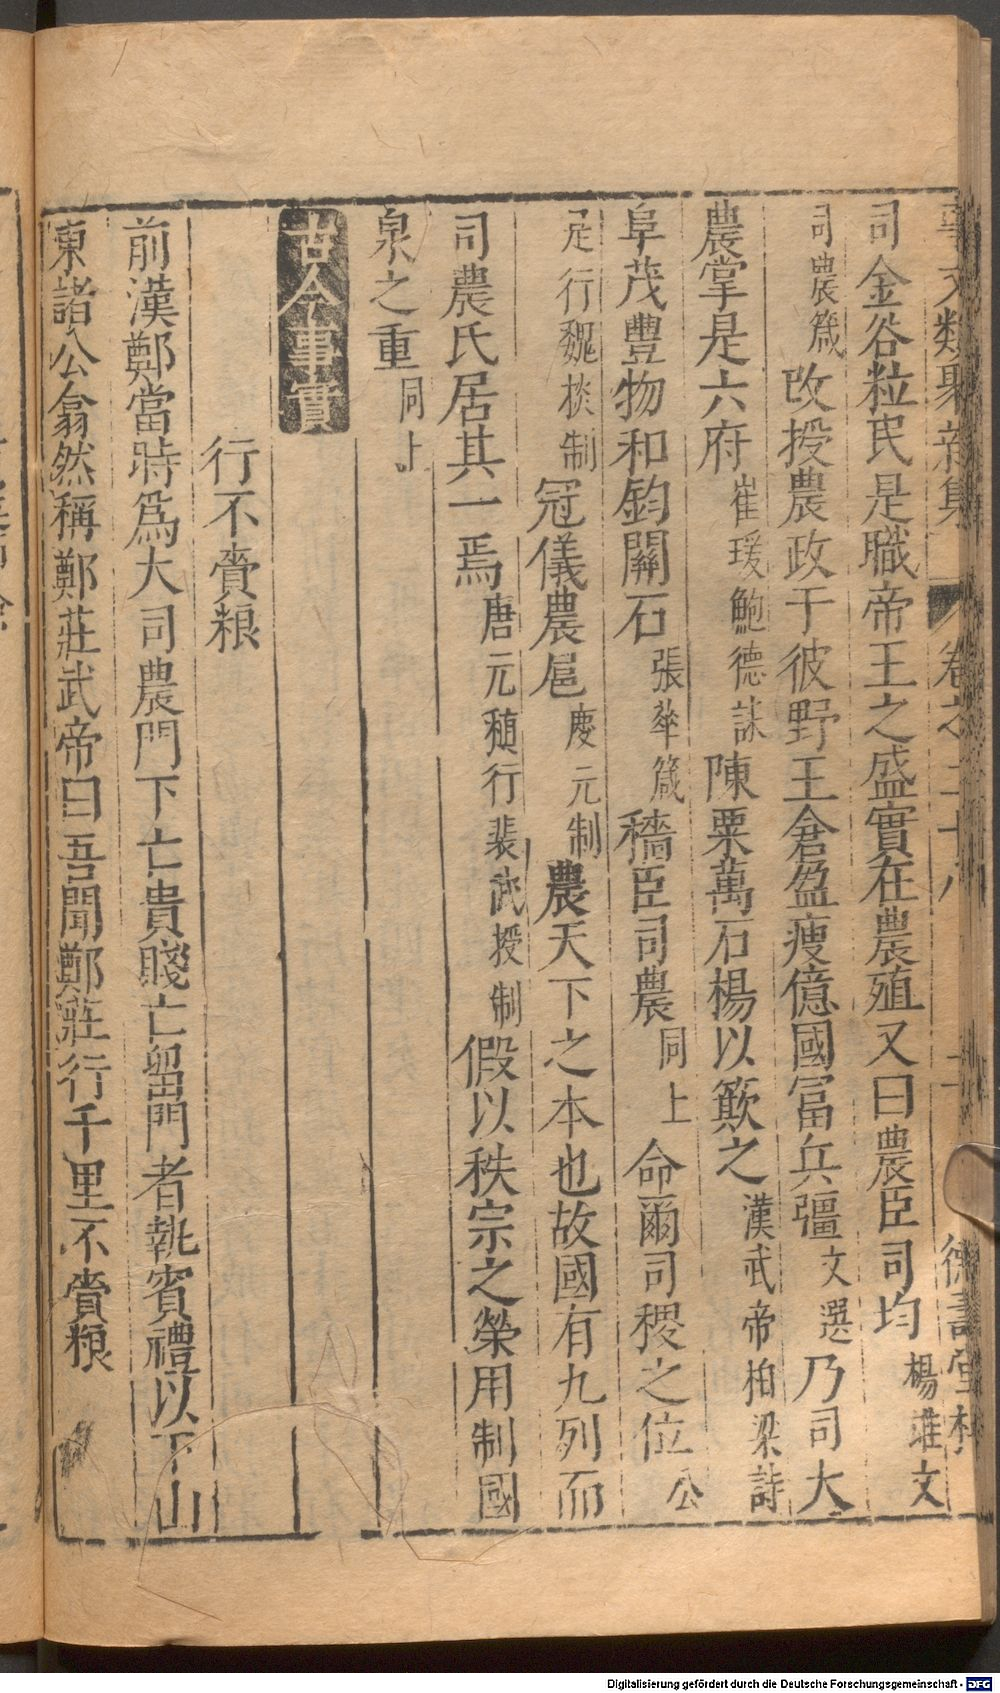 事文類聚新集 卷之二十八 二 德壽堂梓
司金谷粒民是職帝王之盛實在農殖又曰農臣司均楊雄文
司農箴改授農政于彼野王倉盈庾億國富兵彊文選乃司大
農掌是六府崔瑗鮑德誄陳粟萬石楊以歟之漢武帝柏梁詩
阜茂豐物和鈞關石張華箴穡臣司農同上命爾司稷之位公
是行魏棪制冠儀農扈慶元制農天下之本也故國有九列而
司農氏居其一焉唐元稹行裴武授制假以秩宗之榮用制國
泉之重同上
古今事實
行不賫粮
前漢鄭當時爲大司農門下亡貴賤亡留門者執賓禮以下山
東諸公翕然稱鄭莊武帝曰吾聞鄭莊行千里不賫粮
Digitalisierung gefördert durch die Deutsche Forschungsgemeinschaft - DFG